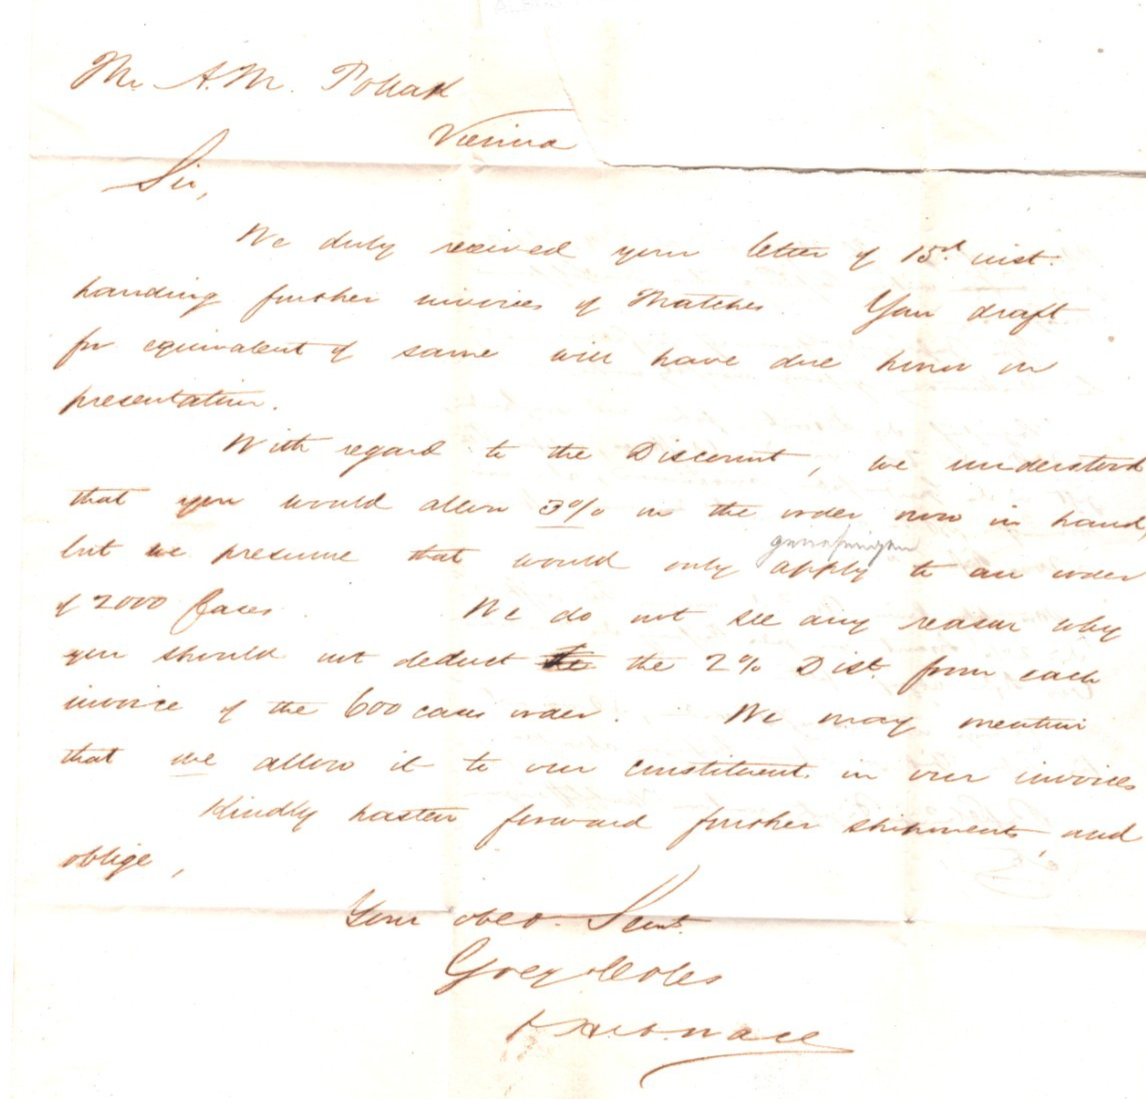 Mr. A. M. Pollak
Vienna
Sir,
We duly received your letter of 15th inst.
handing further invoices of Matches. Your draft
for equivalent of same will have due honor on
presentation.
With regard to the Discount, we understood
that you would allow 3% on the order now in hand,
but we presume that would only apply to an order
of 2000 Cases. We do not see any reason why
you should not deduct the 2% Dist. from each
invoice of the 600 cases order. We may mention
that we allow it to our constituent in our invoices
Kindly hasten forward further shipments, and
oblige,
Your obed. Servt.
Grey